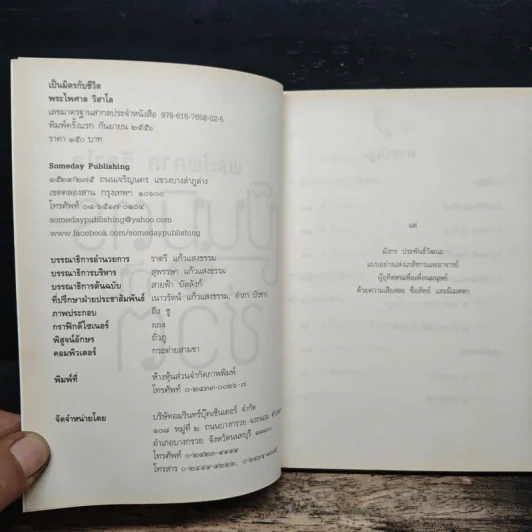 เป็นมิตรกับชีวิต
พระไพศาล วิสาโล
เลขมาตรฐานสากลประจำหนังสือ 978-616-7658-02-5
พิมพ์ครั้งแรก กันยายน ๒๕๕๖
ราคา ๑๕๐ บาท
Someday Publishing
๑๕๒๙/๒๗๕ ถนนเจริญนคร แขวงบางลำภูล่าง
เขตคลองสาน กรุงเทพฯ ๑๐๖๐๐
โทรศัพท์ ๐๘-๖๕๑๗-๐๑๐๔
somedaypublishing@yahoo.com
www.facebook.com/somedaypublishing
บรรณาธิการอำนวยการ ราตรี แก้วแสงธรรม
บรรณาธิการบริหาร สุพรรษา แก้วแสงธรรม
บรรณาธิการต้นฉบับ สายฟ้า บัลลังก์
ที่ปรึกษาฝ่ายประชาสัมพันธ์ เนาวรัตน์ แก้วแสงธรรม,
ภาพประกอบ ถึง ชู
กราฟิกดีไซเนอร์ กกล
พิสูจน์อักษร ถั่วภู
คอมพิวเตอร์ กระต่ายสามขา
พิมพ์ที่ ห้างหุ้นส่วนจำกัดภาพพิมพ์
โทรศัพท์ ๐-๒๔๓๓-๐๐๒๖-๗
จัดจำหน่ายโดย บริษัทอมรินทร์บุ๊คเซ็นเตอร์ จำกัด
๑๐๘ หมู่ที่ ๒ ถนนบางกรวย-จงถนอม
อำเภอบางกรวย จังหวัดนนทบุรี ๑๑๑๓๐
โทรศัพท์ ๐-๒๔๒๓-๙๙๙๙
โทรสาร ๐-๒๔๔๙-๙๒๒๒,
แด่
มังกร ประพันธ์วัฒนะ
แบบอย่างแห่งเภสัชกรและอาจารย์
ผู้อุทิศตนเพื่อเพื่อนมนุษย์
ด้วยความเสียสละ ซื่อสัตย์ และมีเมตตา